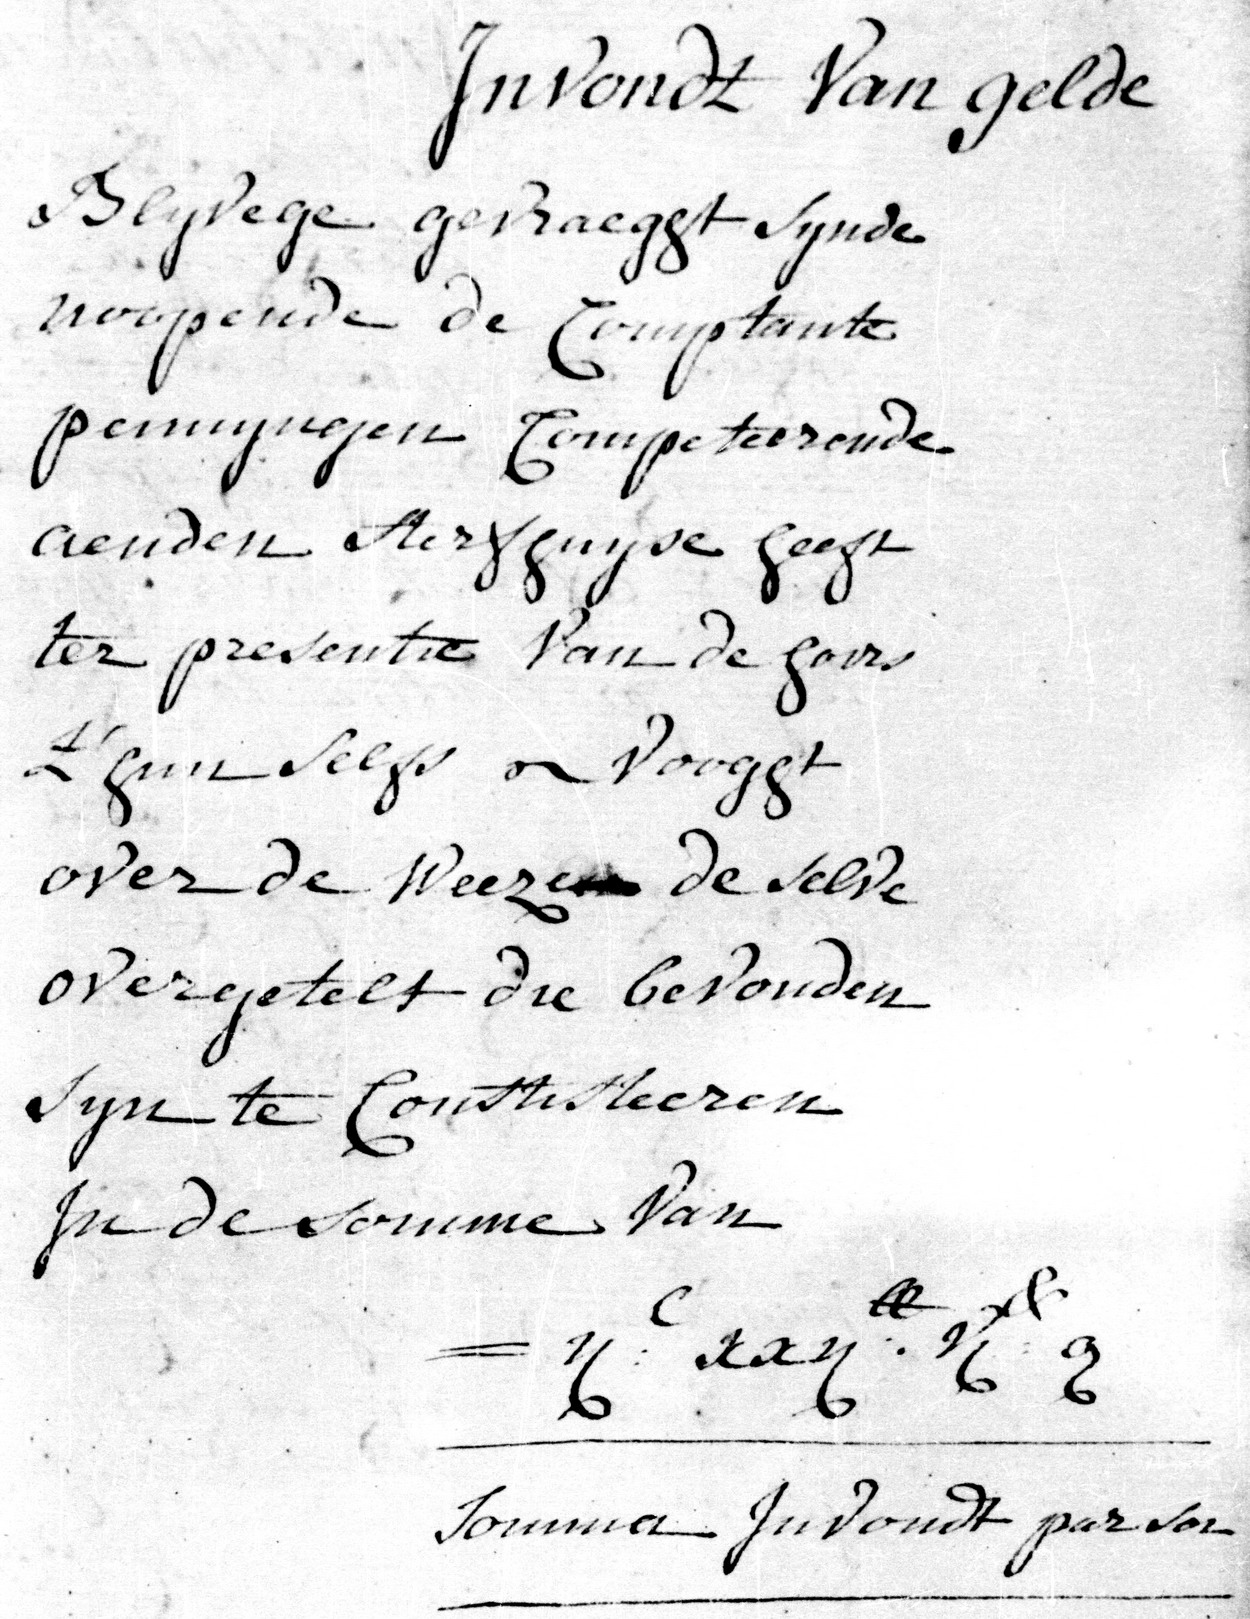 Invondt Van gelde
Blyvege gevraeght synde
noopende de Comptante
pennyngen Competeerende
aenden sterfhuyse heeft
ter presentie Van de hoirs
t'hun selfs en Vooght
over de Weezen de selve
overgetelt die bevonden
syn te Consisteeren
In de somme Van
= ij: C xxij ll. vj: ß g
Somma Invondt par soi